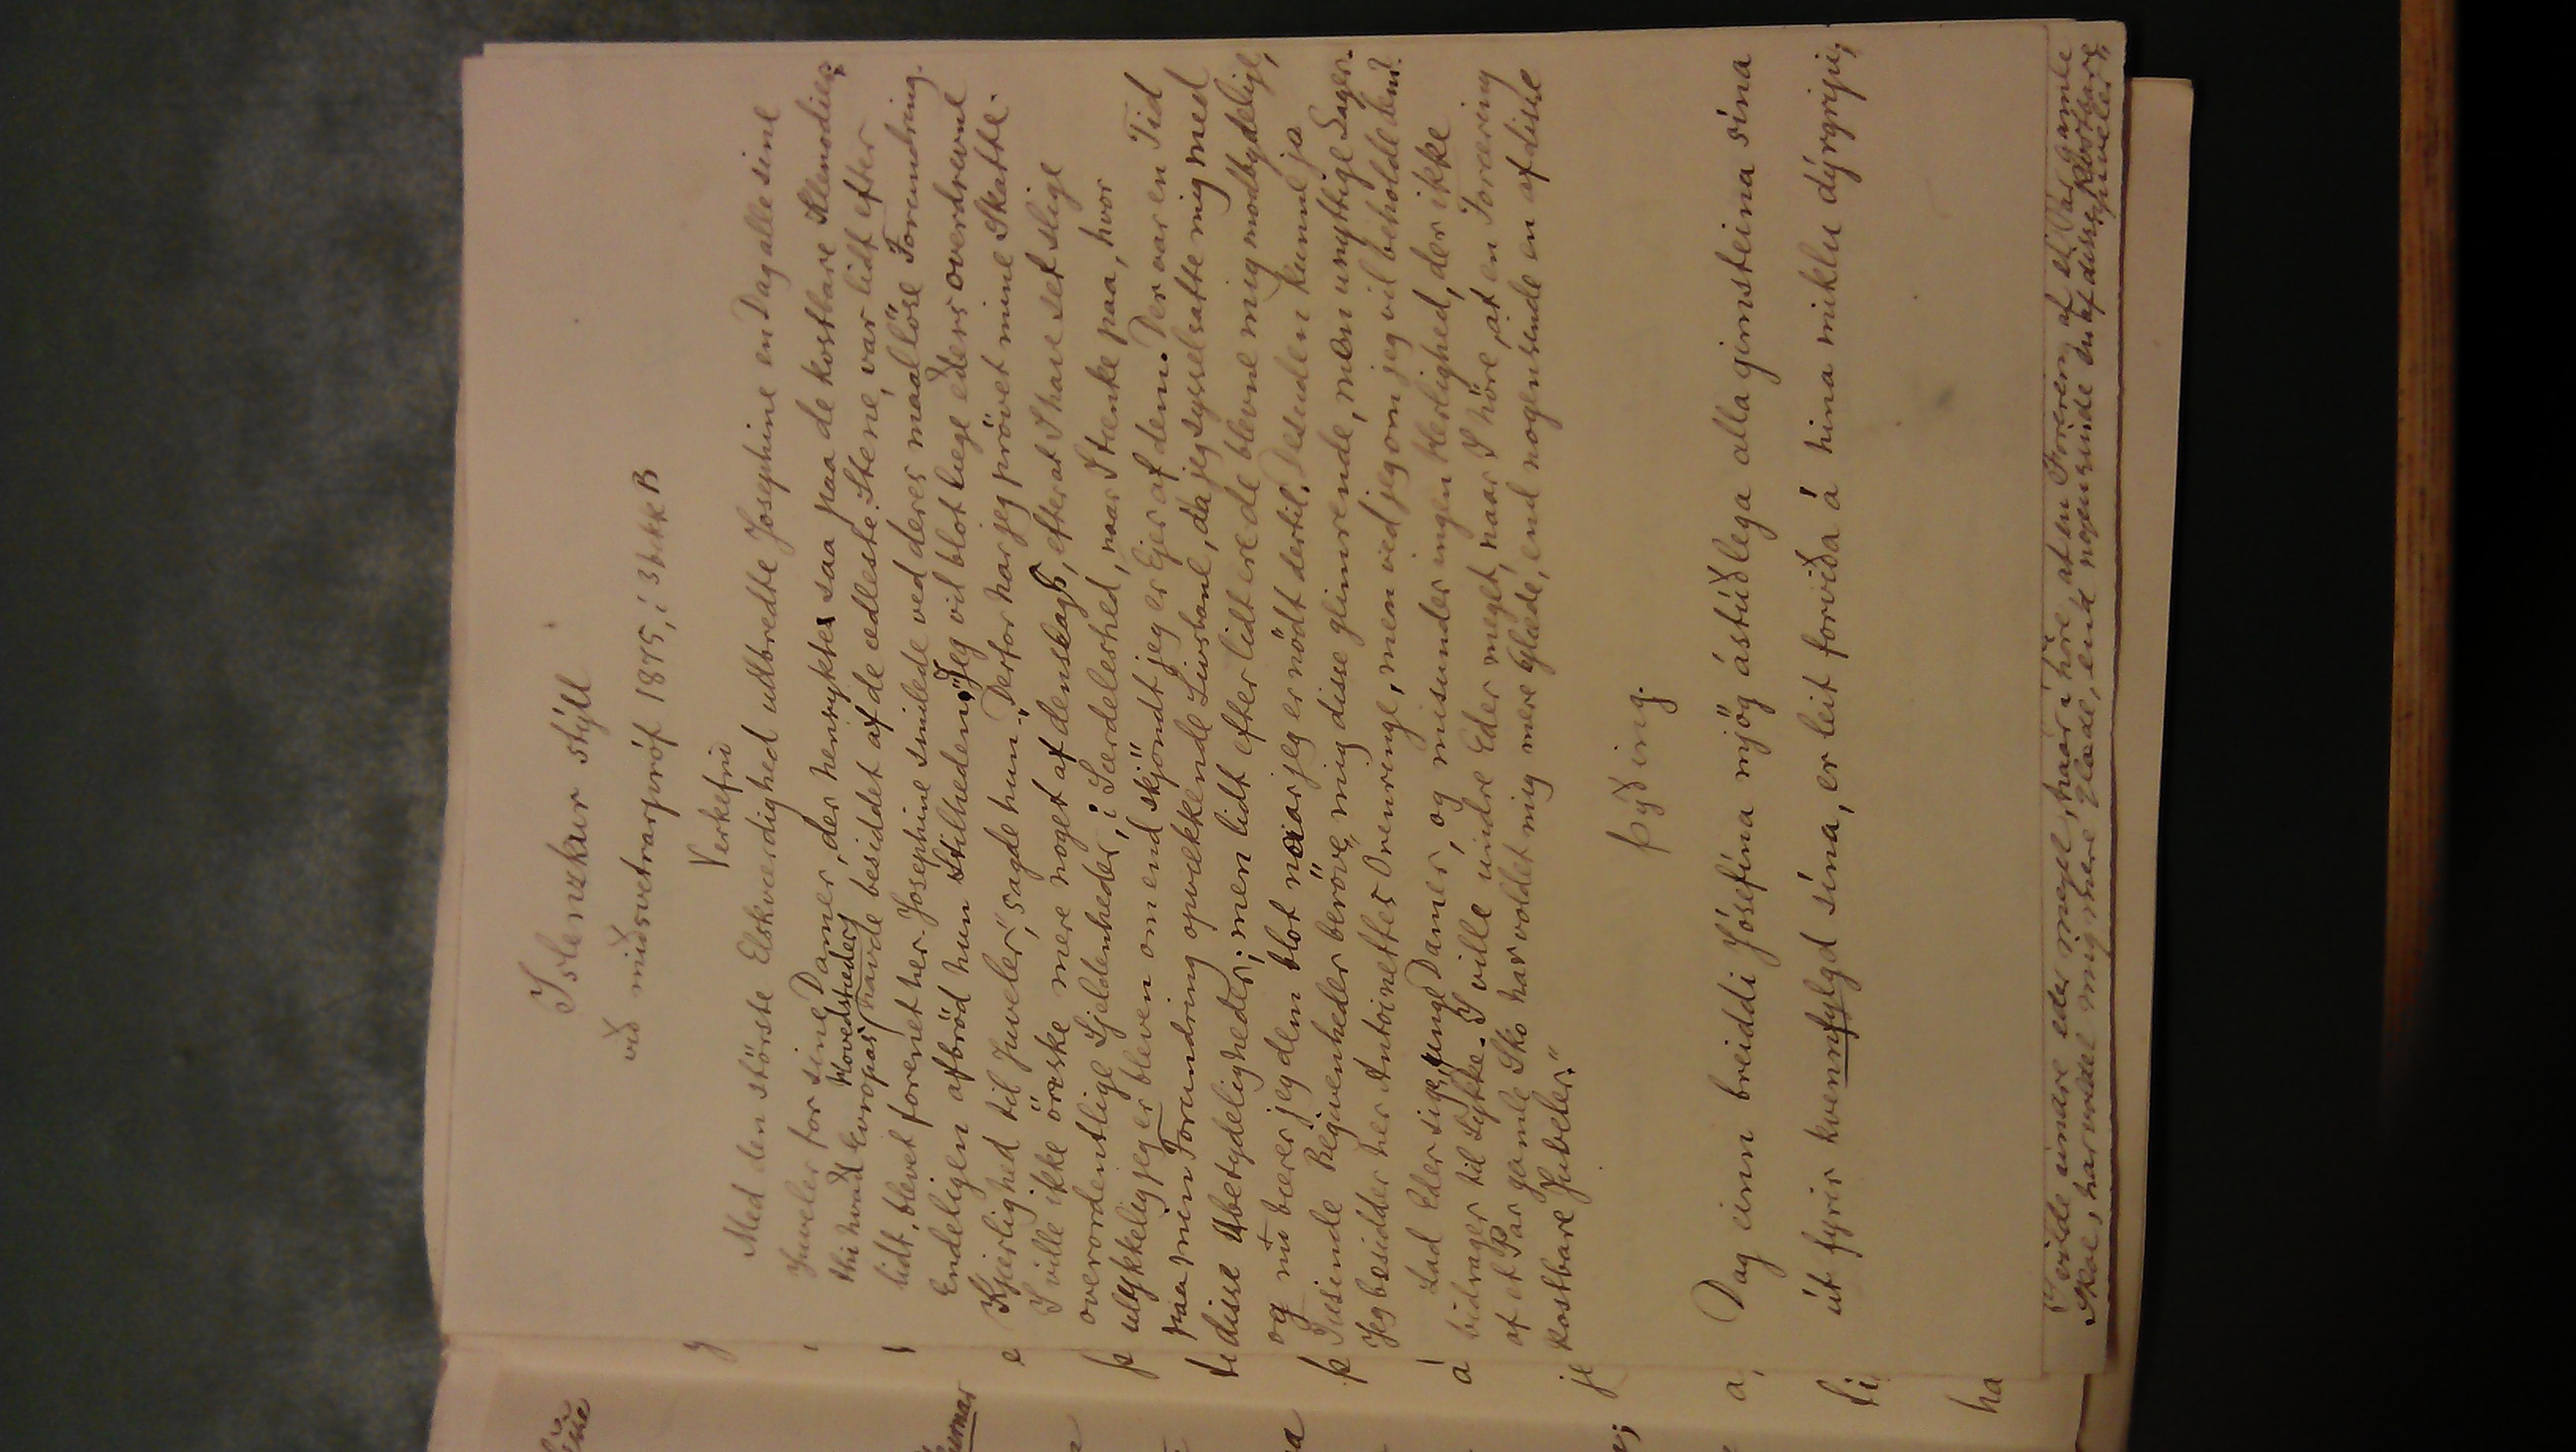 Íslenzkur stýll
við miðsvetrarpróf 1875, í 3 bekk B
Verkefni
Med den störste Elskværdighed udbredte Josephine en Dag alle sine
Juveler for sine Damer, der henryktes saa paa de kostbare Klenodier;
thi hvad Europas Hovedstæder havde besiddet af de ædleste Stene, var lidt efter
lidt blevet forenet her. Josephine smilede ved deres maallöse Forundring.
Endeligen afbröd hun Stilheden. "Jeg vil blot læge eders overdrevne
Kjerlighed til Juveler," sagde hun. "Derfor har jeg prövet mine Skatte.
I ville ikke önske mere noget af den Slags, efterat I have set slige
overordentlige Sjeldenheder, i Særdeleshed, naar I tænke paa, hvor
ulykkelig jeg er bleven om end skjöndt jeg er Ejer af dem. Der var en Tid
paa min Forundring opvækkende Livsbane, da jeg sysselsatte mig med
disse Ubetydeligheder; men lidt efter lidt ere de blevne mig modbydelige,
og nú bærer jeg dem blot naar jeg er nödt dertil. Desuden kunne jo
Tusinde Begivenheder beröve mig disse glimrende, men unyttige Sager.
Jeg besidder her Antoinettes Örenringe, men ved jeg om jeg vil beholde dem?
Lad Eder sige, unge Damer, og misunder ingen Herlighed, der ikke
bidrager til Lykke. I ville undre Eder meget, naar I höre, at en Foræring
af et Par gamle Sko har voldet mig mere Glæde, end nogensinde en af disse
kostbare Jubeler."
Þýðing.
Dag einn breiddi Jósefína mjög ástúðlega alla gimsteina sína
út fyrir kvennfylgd sína, er leit forviða á hina miklu dýrgripi;
I vilde undre eder meget, naar i höre, at en Foreren af et Par gamle
Skoe, har voldet mig mere glæde, end nogensinde en af disse kostbare
juveler"